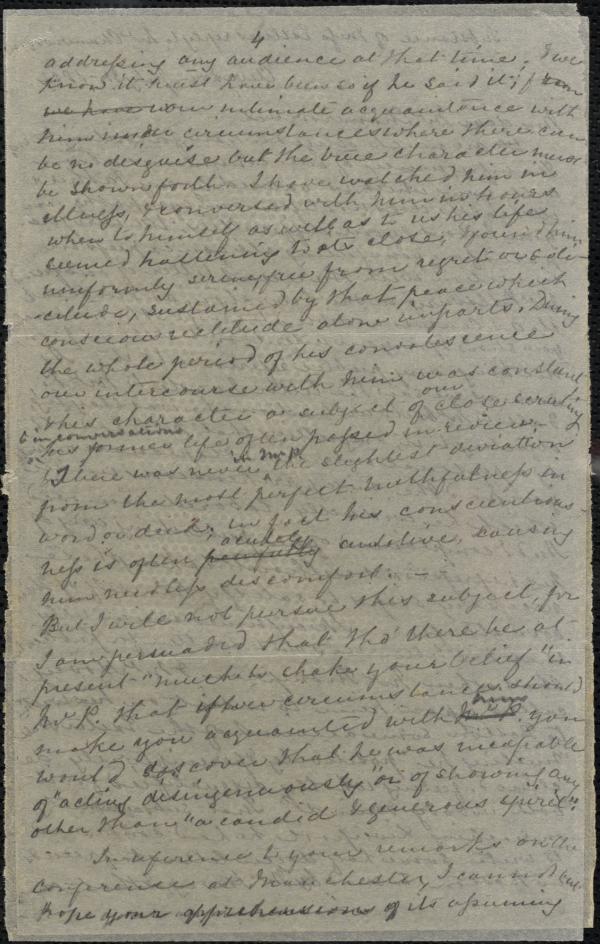 4
addressing any audience at that time. I we
know it must have been so if he said it; from
we have our intimate acquaintance with
him under circumstances where there can
be no disguise but the true character must
be shown forth. I have watched him in
illness, & conversed with him in hours
when to himself as well as to us his life
seemed hastening to its close, & found him
uniformly serene, free from regret or
sustained by that peace which
conscious rectitude alone imparts. During
the whole period of his convalescence
our intercourse with him was constant
& his character a subject of our close scrutiny
& in conversations
his former life often passed in review.
There was never in Mr P. the slightest deviation
from the most perfect truthfulness in
word or deed; in fact his conscientious-
ness is often acutely painfully sensitive, causing
him needless discomfort. —
But I will not pursue this subject, for
I am persuaded that tho' there be at
present "much to shake your belief" in
Mr P. that if ever circumstances should
make you acquainted with Mr P. him you
would discover that he was incapable
of "acting disingenuously" or of showing any
other than "a candid & generous spirit".
In reference to your remarks on the
conference at Manchester, I cannot but
hope your apprehensions of its assuming